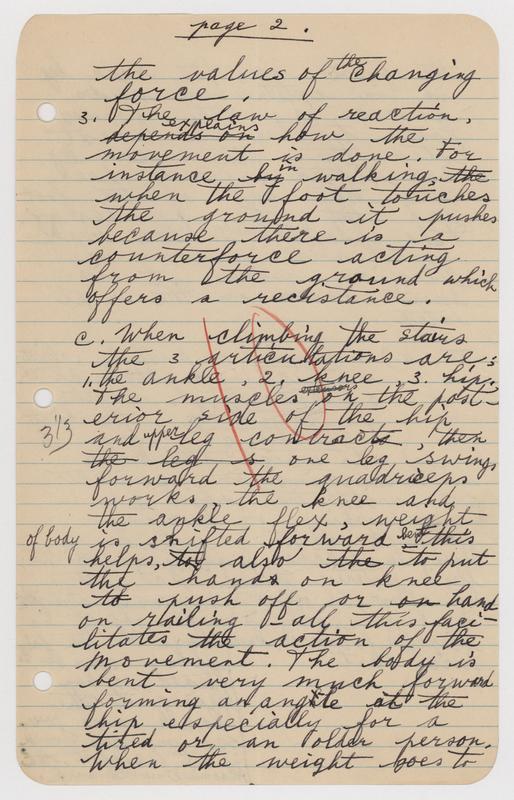 page 2.
the values of the changing
force.
3. The law of reaction,
depends on explains how the
movement is done. For
instance by in walking, the
when the foot touches
the ground it pushes
because there is a
counterforce acting
from the ground which
offers a recistance.
c. When climbing the stairs
the 3 articulations are:
1. the ankle, 2. knee, 3. hip.
The muscles extensors on the post-
erior side of the hip
and upper leg contracts then
the leg is one leg swings
forward the quadriceps
works, the knee and
the ankle flex, weight
of body is shifted forward this
helps, to also the to put
the hands on knee
to push off or on hand
on railing - all this faci-
litates the action of the
movement. The body is
bent very much forward
forming an angle at the
hip especially for a
tired or an older person.
When the weight goes to